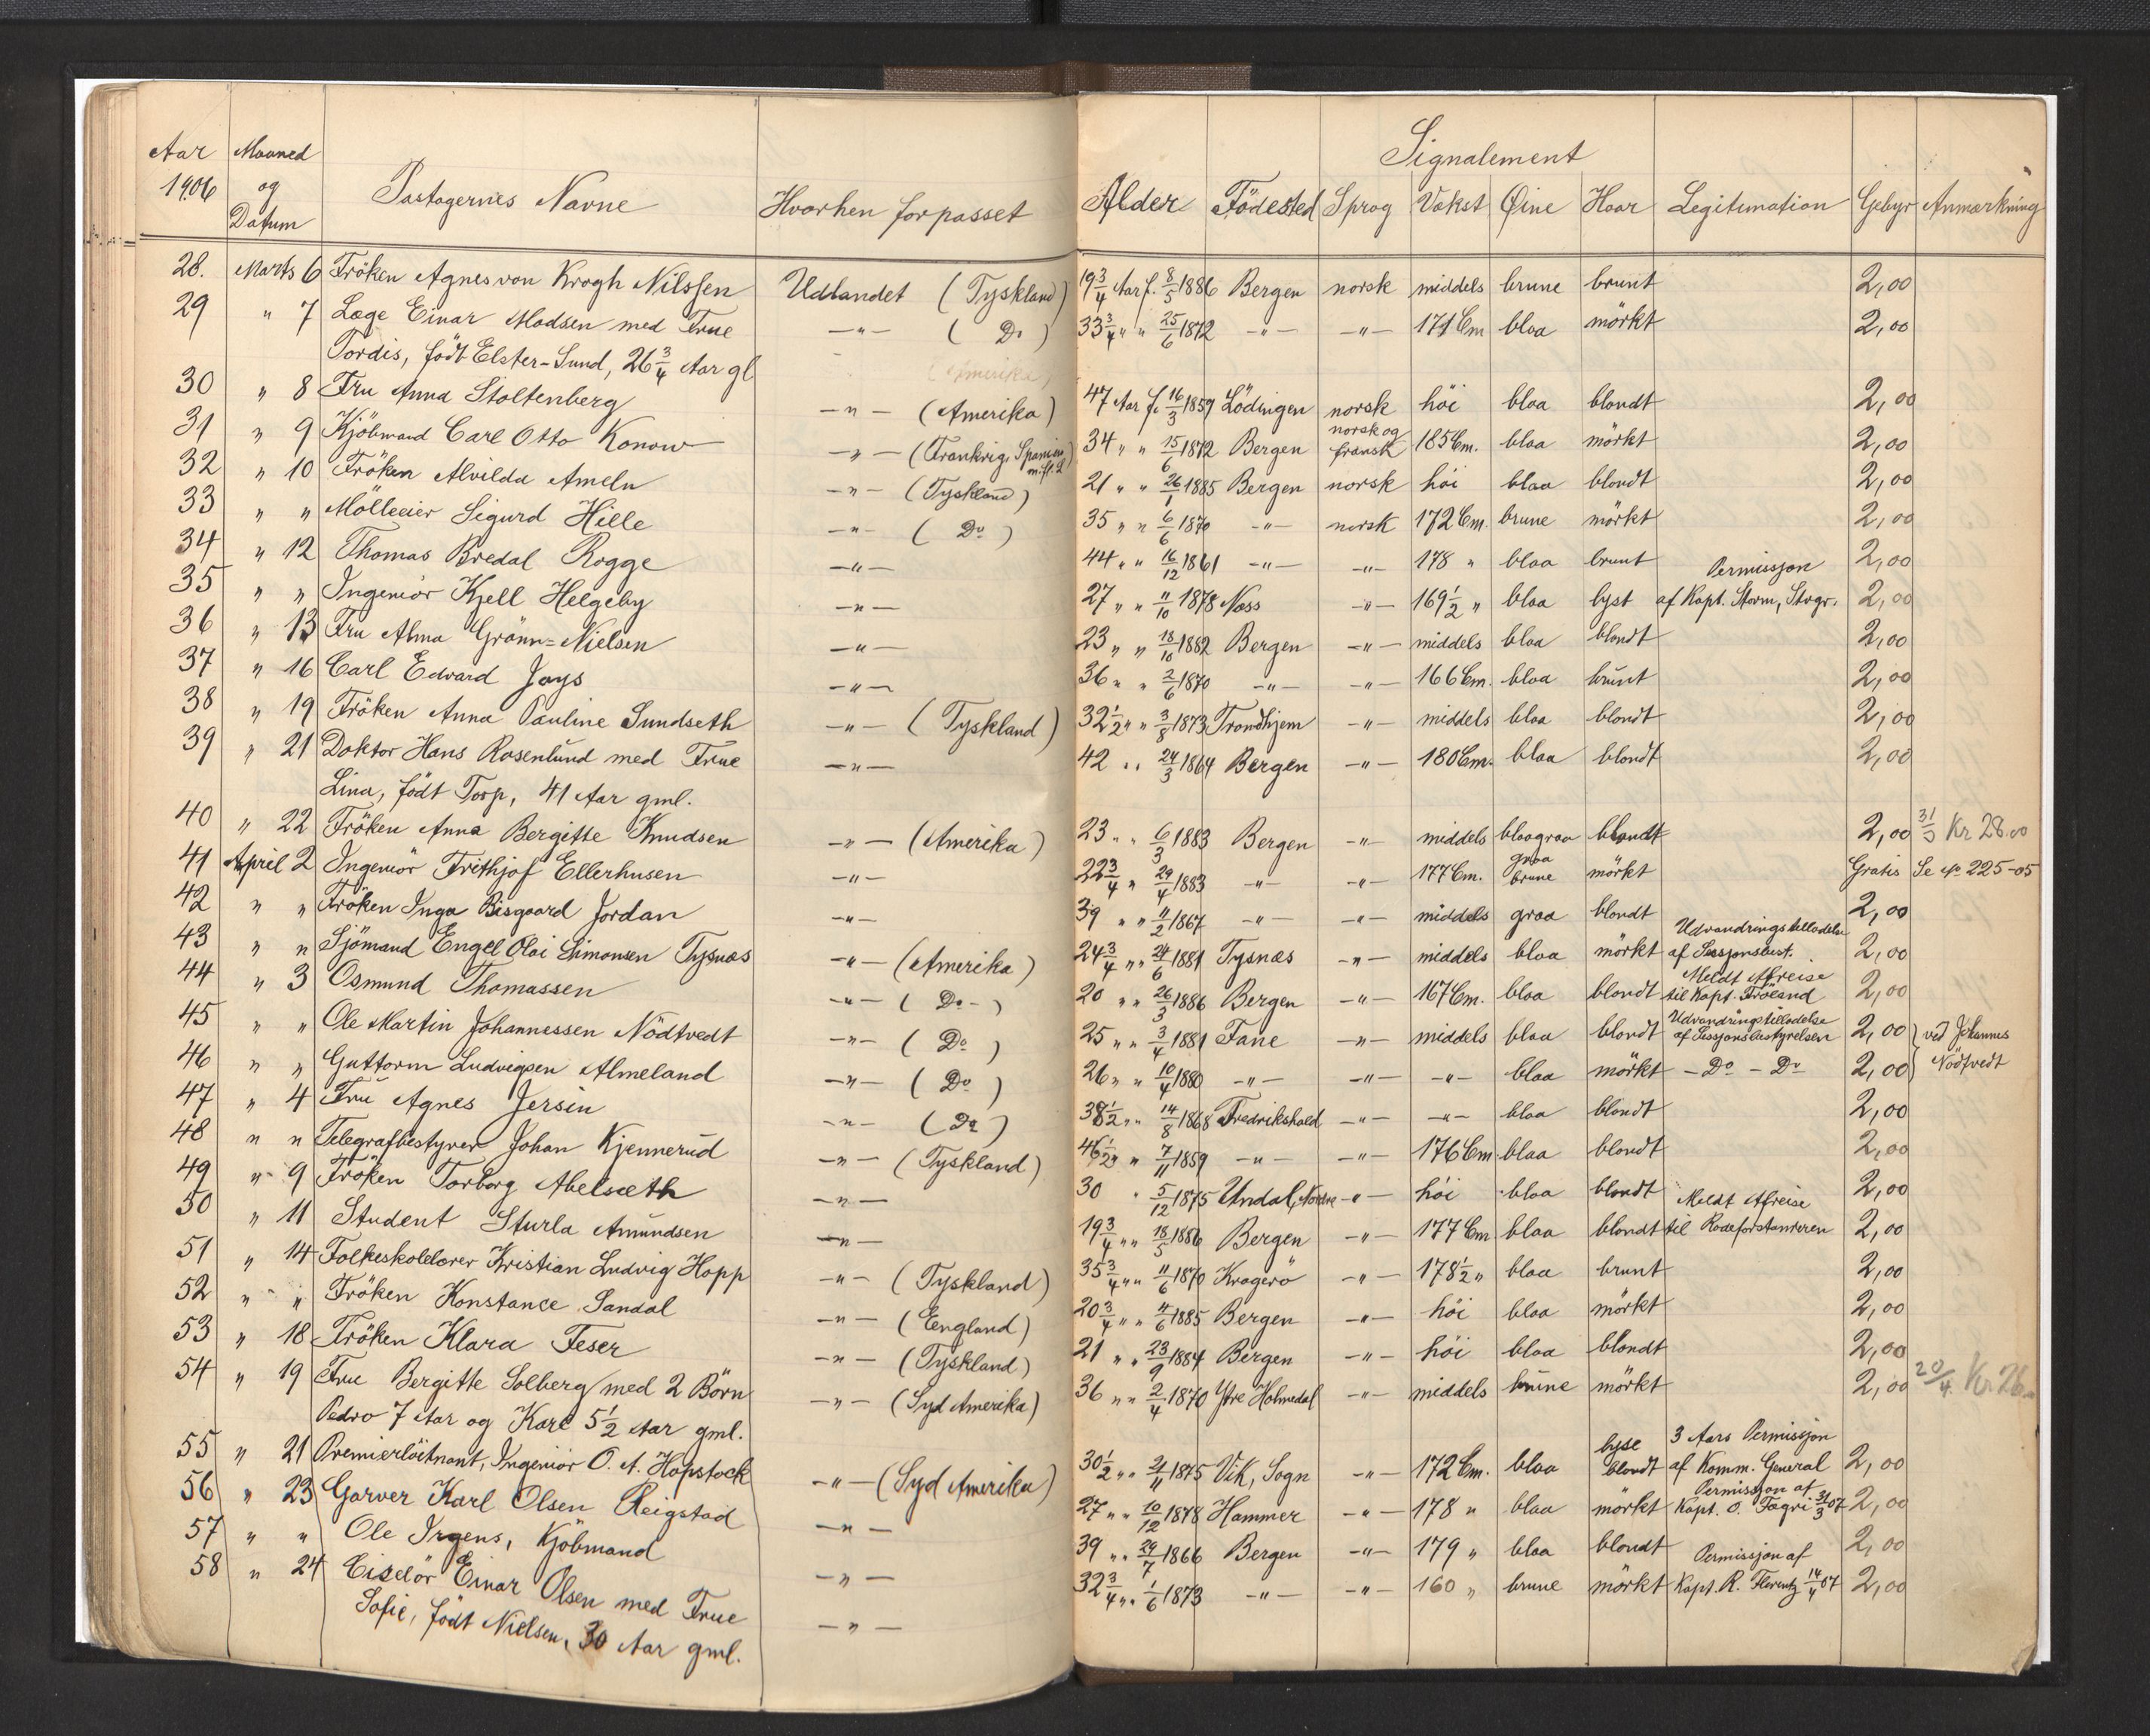 Aar 1906 | Maaned og Datum | Pastagernes Navne | Hvorhen forpasset | Signalement
Alder | Födested | Sprog | Vækst | Øine | Haar | Legitimation | Gebyr | Anmærkning
28. Marts 6 Fröken Agnes von Krogh Nilssen Udlandet (Tyskland) 19 3/4 Aar f. 8/5 1886 Bergen norsk middels brune brunt 2,00
29 " 7 Læge Einar Madsen med Frue —"— (Do) 33 3/4 " " 25/6 1872 —"— —"— 171 Cm bloa mörkt 2,00
Tordis, födt Elster-Lund, 26 3/4 Aar gl (Amerika)
30 " 8 Fru Anna Stoltenberg —"— (Amerika) 47 Aar f. 16/3 1859 Lödingen norsk höi blaa blondt 2,00
31 " 9 Kjöbmand Carl Otto Konow —"— (Frankrig, Spanien m.fl. L) 34 " " 15/6 1872 Bergen norsk og fransk 185 Cm. blaa mörkt 2,00
32 " 10 Fröken Alvilda Ameln —"— (Tyskland) 21 " " 26/1 1885 Bergen norsk höi blaa blondt 2,00
33 " " Mölleeier Sigurd Hille —"— (Do) 35 " " 6/6 1870 —"— norsk 172 Cm. brune mörkt 2,00
34 " 12 Thomas Bredal Rogge —"— 44 " " 16/12 1861 —"— —"— 178 " blaa brunt 2,00
35 " " Ingeniör Kjell Helgeby —"— 27 " " 11/10 1878 Næss —"— 169 1/2 " blaa lyst Permissjon af Kapt. Storm, Stvgr. 2,00
36 " 13 Fru Alma Grönn=Nielsen —"— 23 " " 18/10 1882 Bergen —"— middels blaa blondt 2,00
37 " 16 Carl Edvard Jays —"— 36 " " 2/6 1870 —"— —"— 166 Cm. blaa brunt 2,00
38 " 19 Fröken Anna Pauline Sundseth —"— (Tyskland) 32 1/2 " " 3/8 1873 Trondhjem —"— middels blaa blondt 2,00
39 " 21 Doktor Hans Rosenlund med Frue —"— 42 " " 24/3 1864 Bergen —"— 180 Cm. blaa blondt 2,00
Lina, födt Torp, 41 Aar gml.
40 " 22 Fröken Anna Bergitte Knudsen —"— (Amerika) 23 " " 6/3 1883 Bergen —"— middels blaagraa blondt 2,00 31/3 Kr 28.00
41 April 2 Ingeniör Frithjof Ellerhusen —"— 22 3/4 " 29/4 1883 —"— —"— 177 Cm. graa brune mörkt Gratis Se No 225-05
42 " " Fröken Inga Bisgaard Jordan —"— 39 " " 11/2 1867 —"— —"— middels graa blondt 2,00
43 " " Sjömand Engel Olai Simonsen Tysnæs —"— (Amerika) 24 3/4 " " 24/6 1881 Tysnæs —"— middels blaa mörkt Udvandringstilladelse af Sessjonsbest. 2,00
44 " 3 Osmund Thomassen —"— (Do) 20 " " 26/3 1886 Bergen —"— 167 Cm. blaa blondt Meldt Afreise til Kapt. Fröland 2,00
45 " " Ole Martin Johannessen Nödtvedt —"— (Do) 25 " " 3/4 1881 Fane —"— middels blaa blondt Udvandringstilladelse af Sessjonsbestyrelsen 2,00 ved Johannes
46 " " Guttorm Ludvigsen Almeland —"— (Do) 26 " " 10/4 1880 —"— —"— —"— blaa mörkt —Do —Do 2,00 Nödtvedt
47 " 4 Fru Agnes Jersin —"— (Do) 38 1/2 " " 14/8 1868 Fredrikshald —"— —"— blaa blondt 2,00
48 " " Telegrafbestyrer Johan Kjennerud —"— (Tyskland) 46 1/2 " " 7/11 1859 —"— —"— 176 Cm. blaa blondt 2,00
49 " 9 Fröken Torborg Abelsæth —"— 30 " 5/12 1875 Undal, Nordre —"— höi blaa blondt 2,00
50 " 11 Student Sturla Amundsen —"— 19 3/4 " " 18/5 1886 Bergen —"— 177 Cm blaa blondt Meldt Afreise til Rodeforstanderen 2,00
51 " 14 Folkeskolelærer Kristian Ludvig Hopp —"— (Tyskland) 35 3/4 " " 11/6 1870 Kragerö —"— 178 1/2 " blaa brunt 2,00
52 " " Fröken Konstance Sandal —"— (England) 20 3/4 " " 4/6 1885 Bergen —"— höi blaa mörkt 2,00
53 " 18 Fröken Klara Feser —"— (Tyskland) 21 " " 23/9 1884 Bergen —"— höi blaa blondt 2,00
54 " 19 Frue Bergitte Solberg med 2 Börn —"— (Syd Amerika) 36 " " 2/4 1870 Ytre Holmedal —"— middels brune mörkt 2,00 20/4 Kr 26
Pedro 7 Aar og Karl 5 1/2 Aar gml.
55 " 21 Premierlöitnant, Ingeniör O. A. Hopstock —"— (Syd Amerika) 30 1/2 " " 2/11 1875 Vik, Sogn —"— 172 Cm. blaa lyse blondt 3 Aars Permissjon af Komm. General 2,00
56 " 23 Garver Karl Olsen Reigstad —"— 27 " " 10/12 1878 Hammer —"— 178 " blaa mörkt Permissjon af Kapt. O. Fagri 31/3 07 2,00
57 " " Ole Irgens, Kjöbmand —"— 39 " " 29/7 1866 Bergen —"— 179 " blaa blondt 2,00
58 " 24 Ciselör Einar Olsen med Frue —"— 32 3/4 " " 1/6 1873 —"— —"— 160 " brune mörkt Permissjon af Kapt. R. Florentz 14/4 07 2,00
Sofie, födt Nielsen, 30 Aar gml.